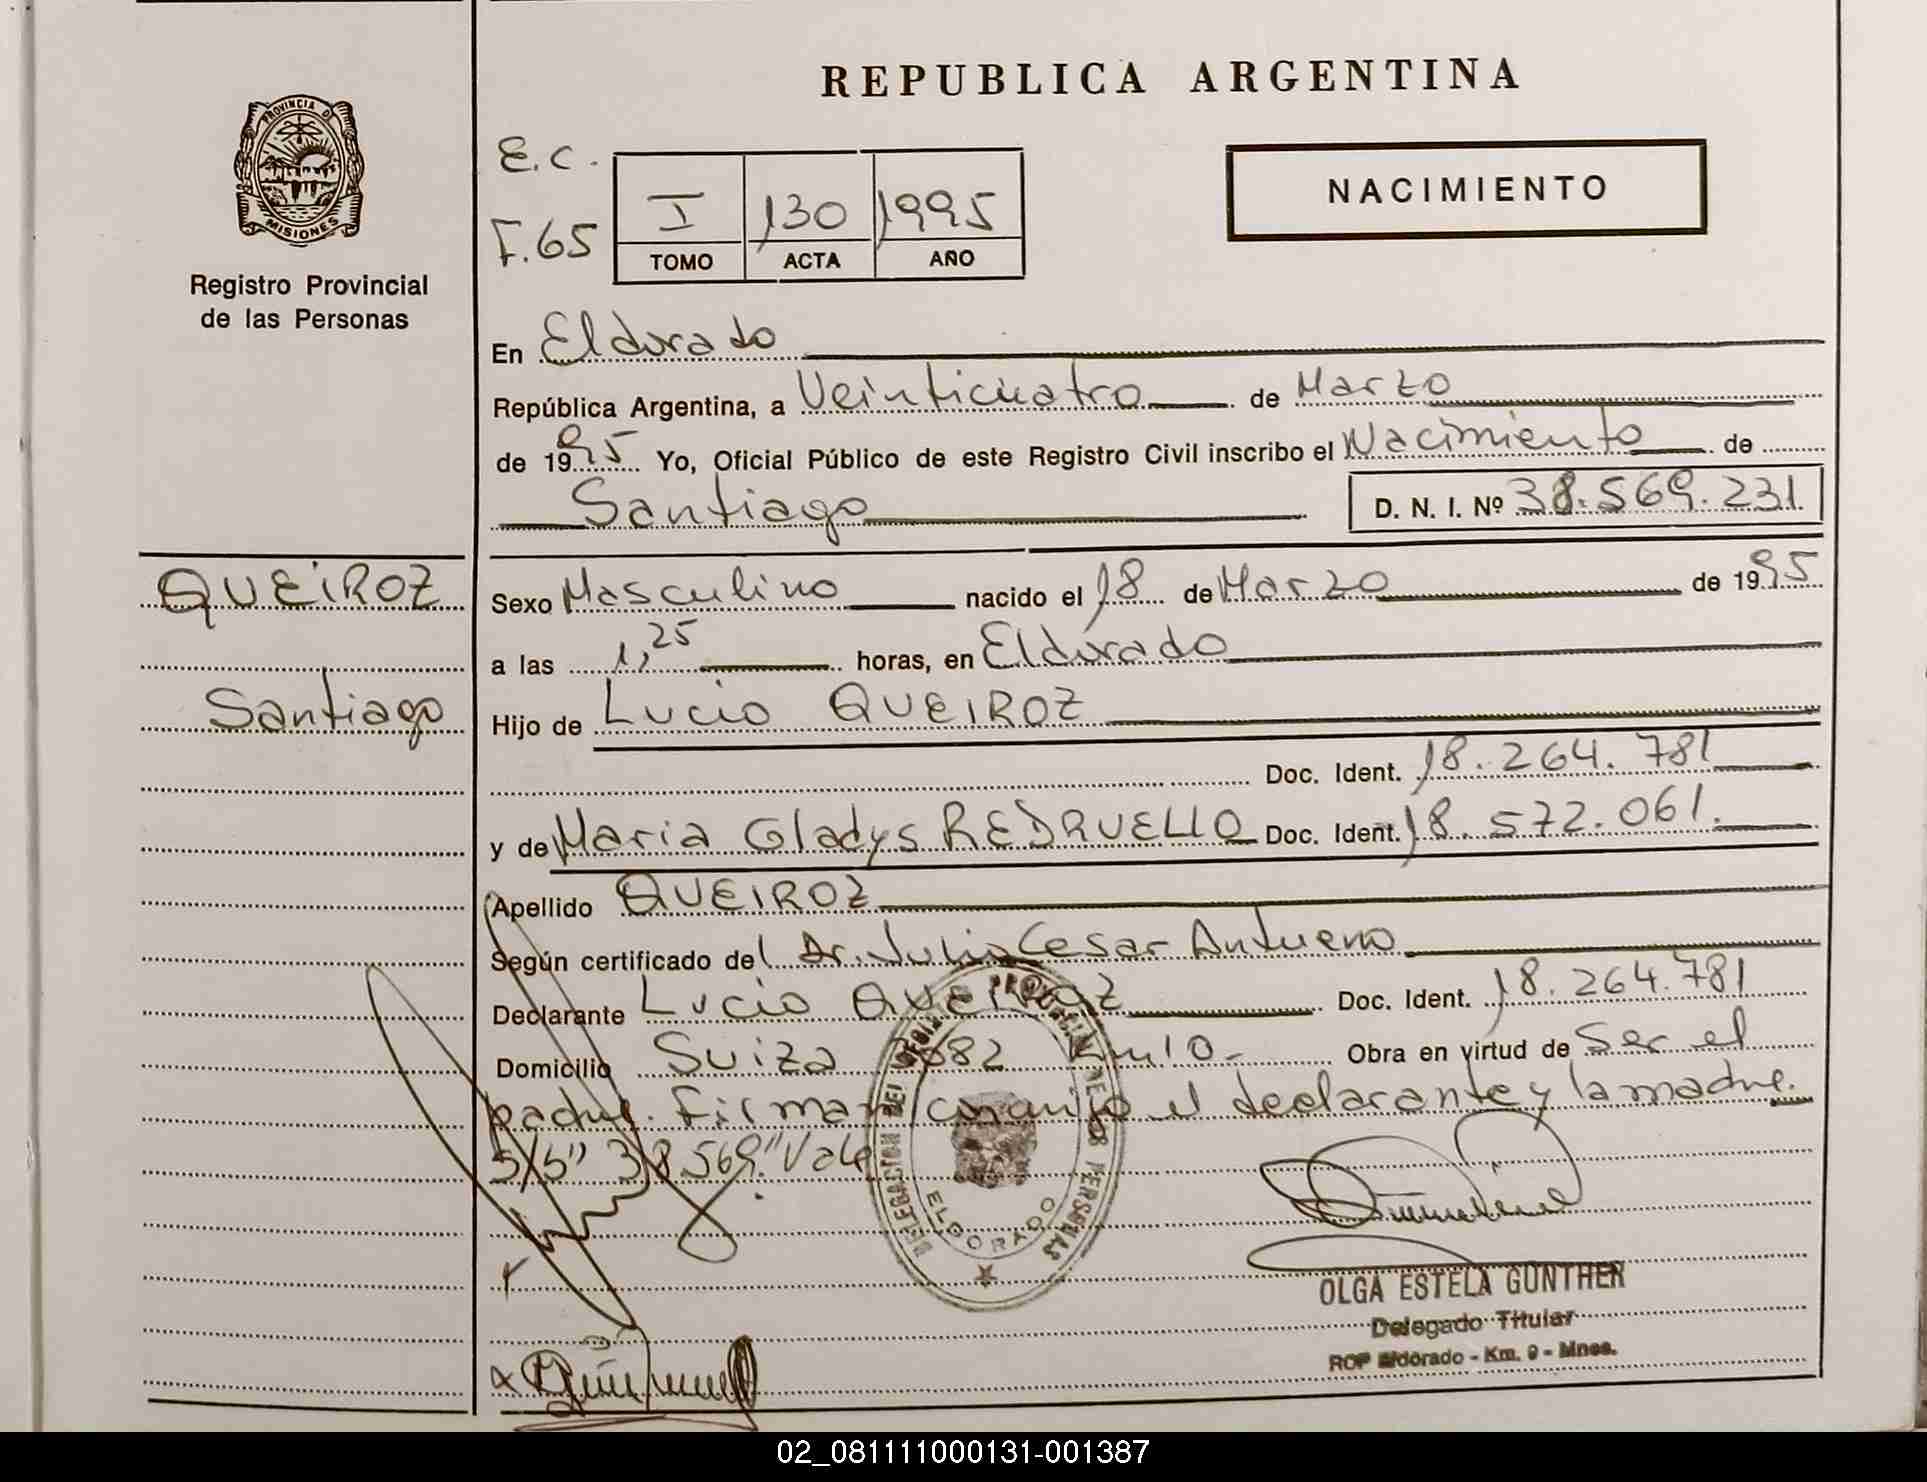 REPUBLICA ARGENTINA
PROVINCIA DE
MISIONES
Registro Provincial
de las Personas
E.C.
F.65
I 130 1995
TOMO ACTA AÑO
NACIMIENTO
En Eldorado
República Argentina, a Veinticuatro de Marzo
de 1995 Yo, Oficial Público de este Registro Civil inscribo el Nacimiento de
Santiago D. N. I. Nº 38.569.231.
QUEIROZ
Santiago
Sexo Masculino nacido el 18 de Marzo de 1995
a las 1,25 horas, en Eldorado
Hijo de Lucio QUEIROZ
Doc. Ident. 18.264.781
y de Maria Gladys REDRUELLO Doc. Ident. 18.572.061.
Apellido QUEIROZ
Según certificado del Dr. Julio Cesar Antueno
Declarante Lucio QUEIROZ Doc. Ident. 18.264.781
Domicilio Suiza 682 Km 10.- Obra en virtud de Ser el
padre. Firman conmigo el declarante y la madre.
S/b" 38.569." Vale
DELEGACION DEL REGISTRO PROVINCIAL DE LAS PERSONAS
ELDORADO
OLGA ESTELA GUNTHER
Delegado Titular
ROP Eldorado - Km. 9 - Mnes.
02_081111000131-001387